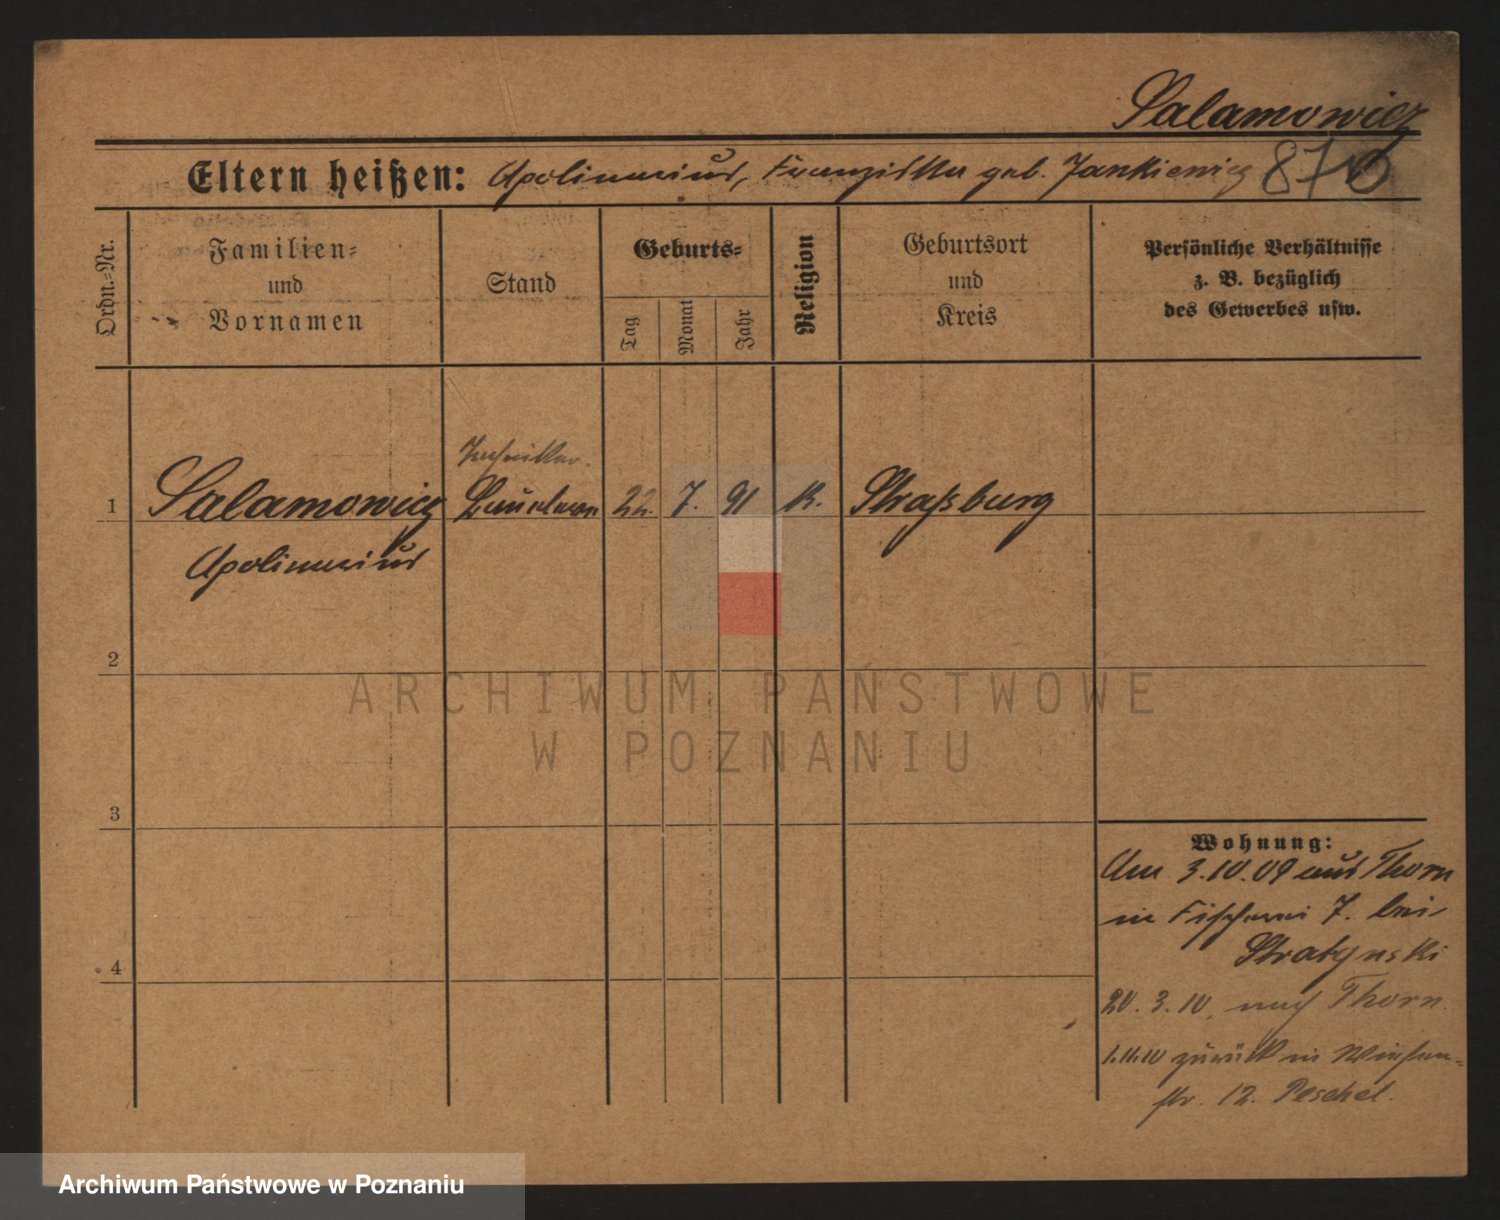 Salamowicz
Eltern heißen: Apolinarius, Franziska geb. Jankiewicz 870
Ordn.-Nr.
Familien- und Vornamen
Stand
Geburts-
Tag
Monat
Jahr
Religion
Geburtsort und Kreis
Persönliche Verhältnisse
z. B. bezüglich
des Gewerbes usw.
Techniker.
1 Salamowicz 22. 7. 91 K. Straßburg
Apolinarius
2
3
4
Wohnung:
Am 3.10.09 aus Thorn
in Fischerei 7. bei
20. 3. 10. nach Thorn.
1.11.10 zurück in Wiesen-
str. 12. Peschel.
ARCHIWUM PAŃSTWOWE
W POZNANIU
Archiwum Państwowe w Poznaniu